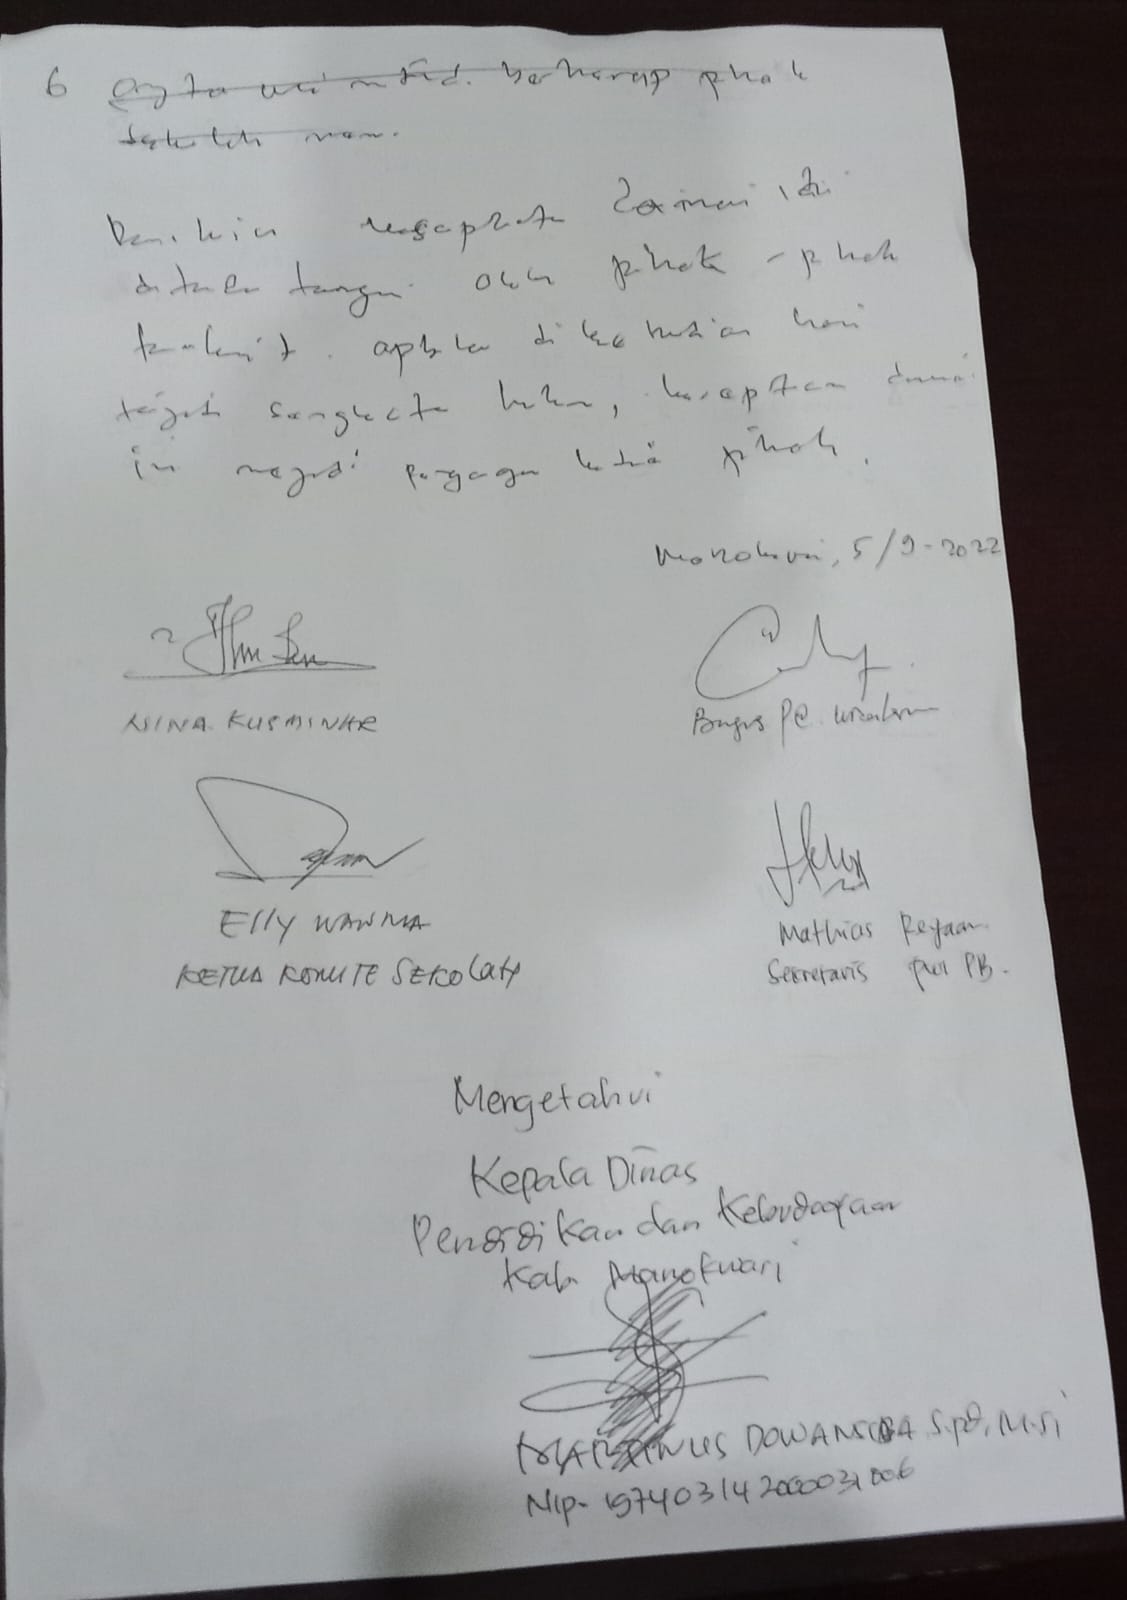 6 berharap pihak
Demikian kesepakatan damai ini
di tanda tangan oleh pihak - pihak
terkait. apbla di kemudian hari
terjadi sengketa hukum, kesepakatan damai
ini menjadi pegangan kedua pihak.
Manokwari, 5/9-2022
NINA KUSMINAR
Bagus
ELLY WANMA
KETUA KOMITE SEKOLAH
Mathias Reyaan
Sekretaris PWI PB.
Mengetahui
Kepala Dinas
Pendidikan dan Kebudayaan
Kab Manokwari
MARTINUS DOWANSIBA S.pd, M.Si
Nip- 197403142000031006